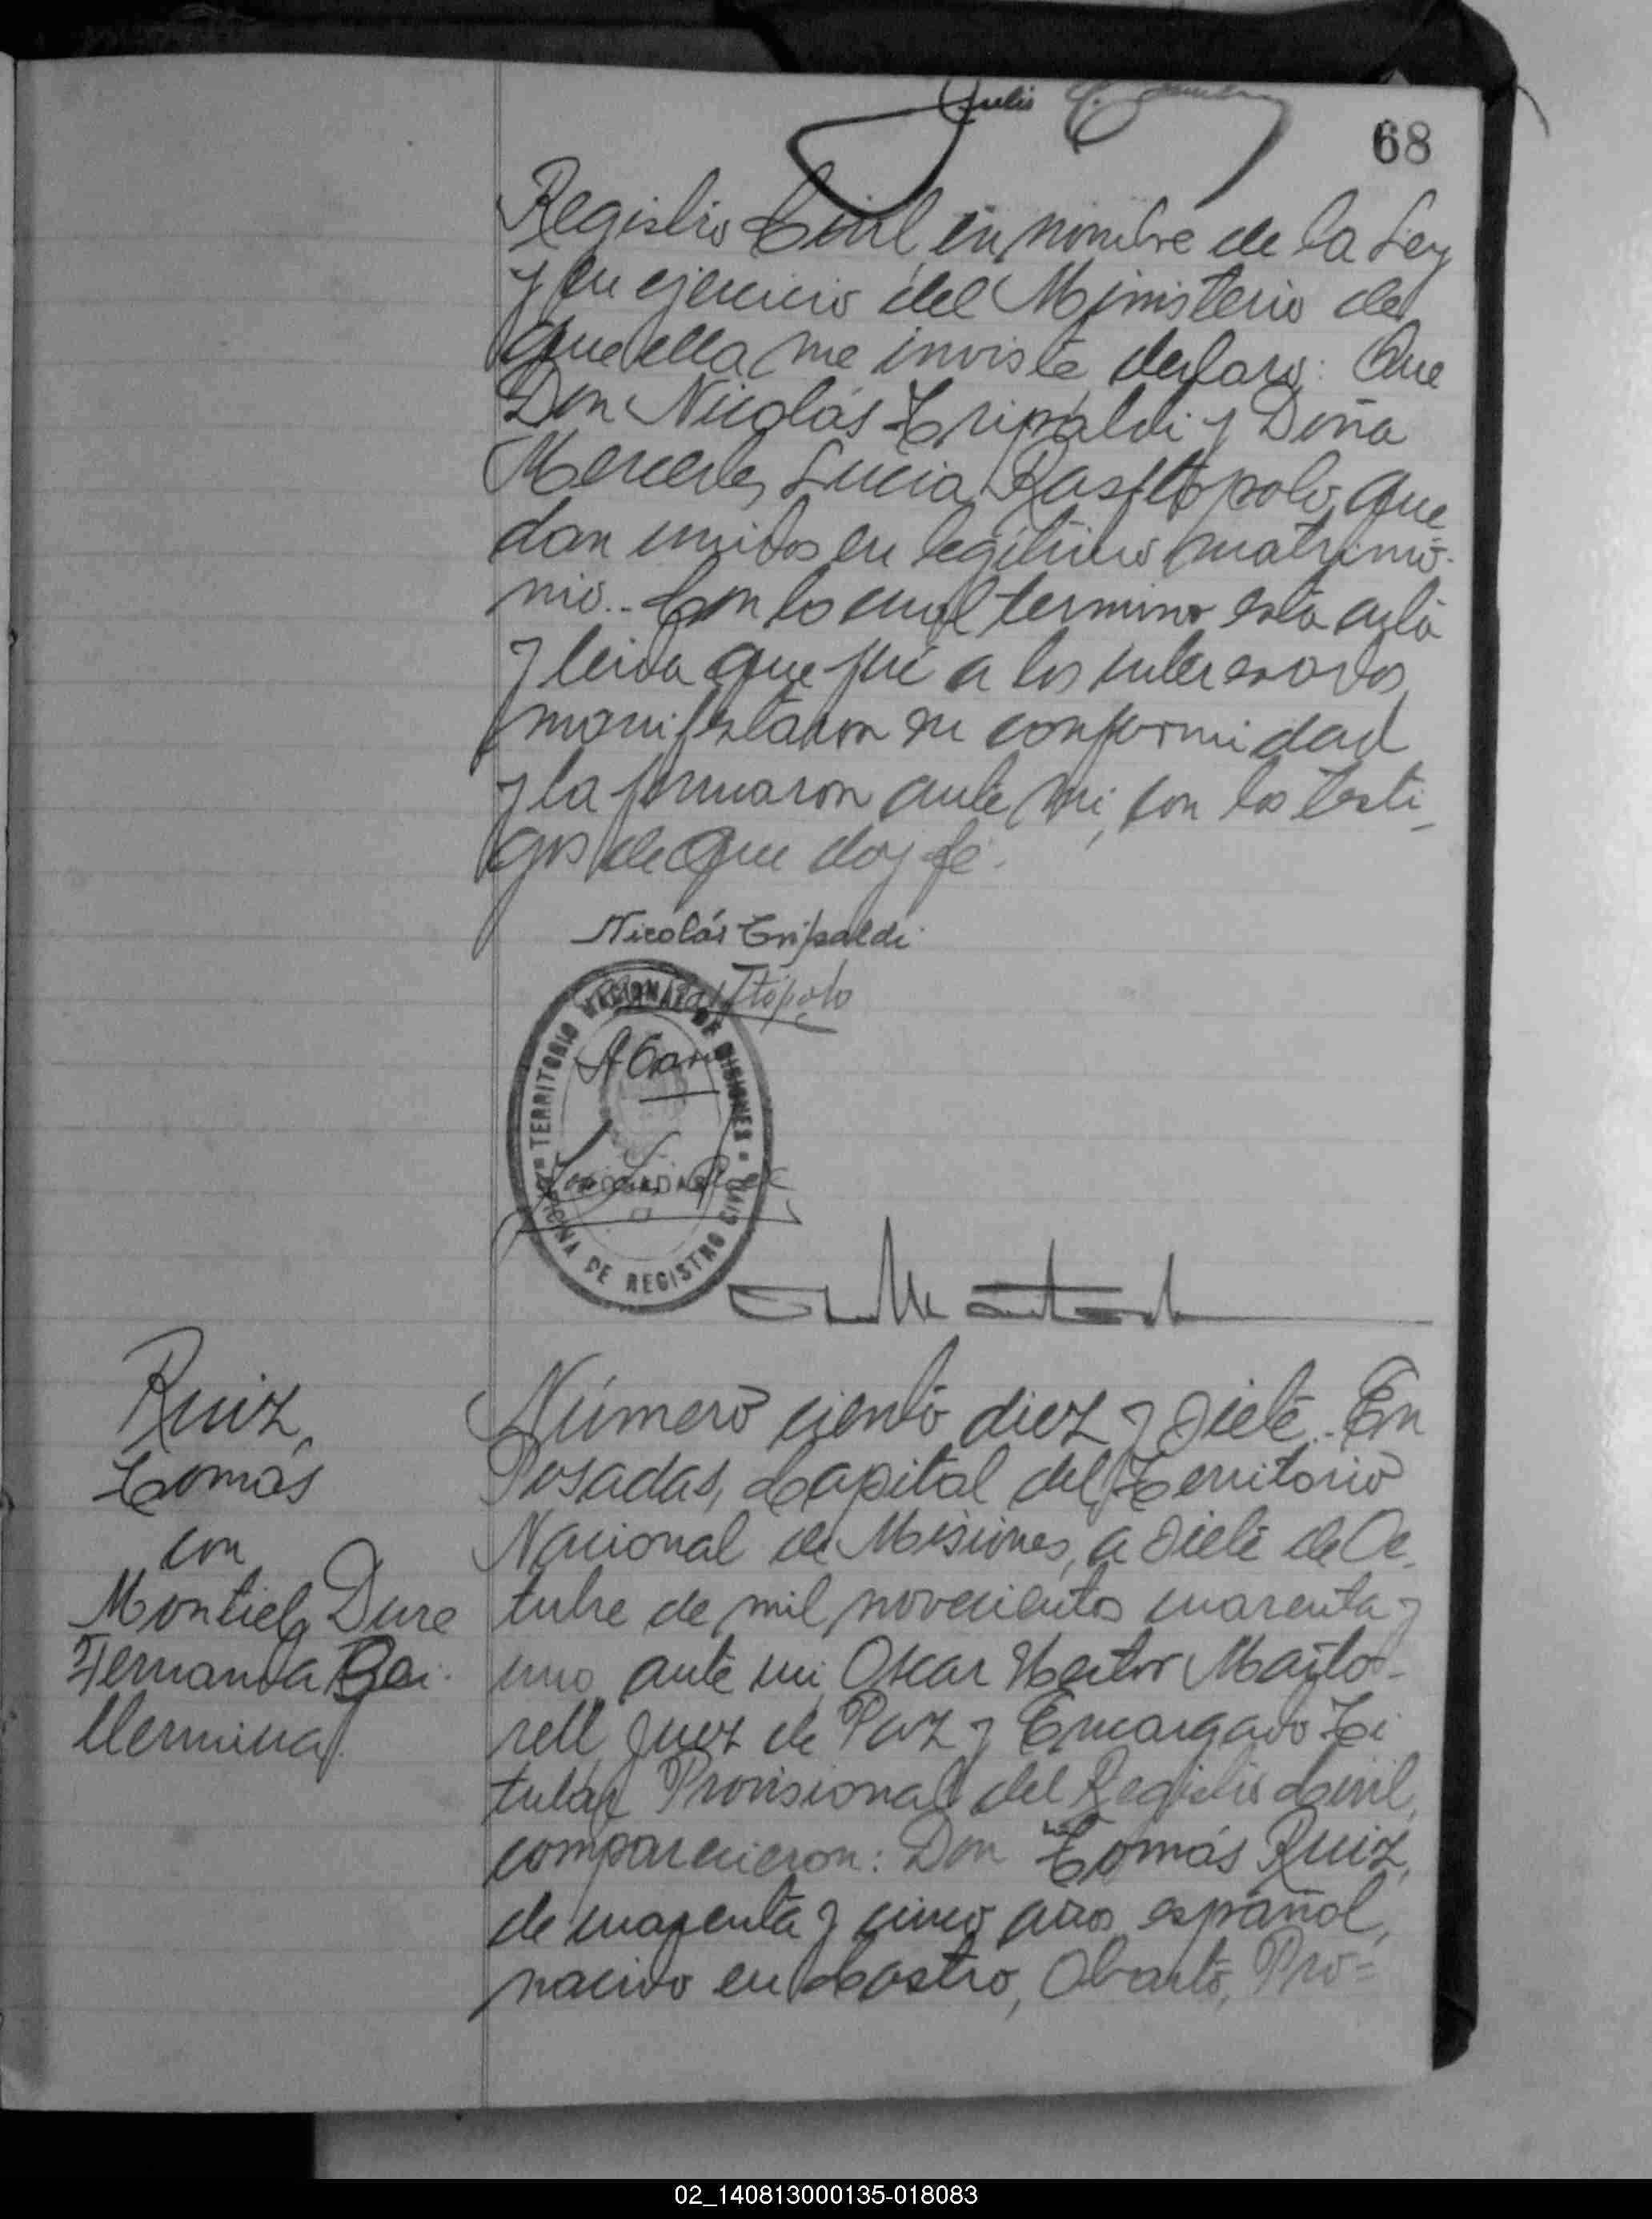 Julio C.
68
Registro Civil en nombre de la Ley
y en ejercicio del Ministerio de
que ella me inviste, declaro: Que
Don Nicolás Tripaldi y Doña
Mercedes Lucia Rasftópolo, que
dan unidos en legítimo matrimo-
nio.- Con lo cual termino esta acta
y leida que fué a los interesados,
manifestaron su conformidad
y la firmaron ante mi, con los testi-
gos de que doy fé.
Nicolás Tripaldi
TERRITORIO NACIONAL DE MISIONES
POSADAS
OFICINA DE REGISTRO CIVIL
Ruiz,
Tomás
con
Montiel Dure
Fernanda Gui-
llermina
Número ciento diez y siete.- En
Posadas, Capital del Territorio
Nacional de Misiones, a siete de Oc-
tubre de mil novecientos cuarenta y
uno ante mi, Oscar Hector Marto-
rell Juez de Paz y Encargado Ti
tular Provisional del Registro Civil,
comparecieron: Don Tomás Ruiz,
de cuarenta y cinco años, español,
nacido en Castro, Pro=
02_140813000135-018083